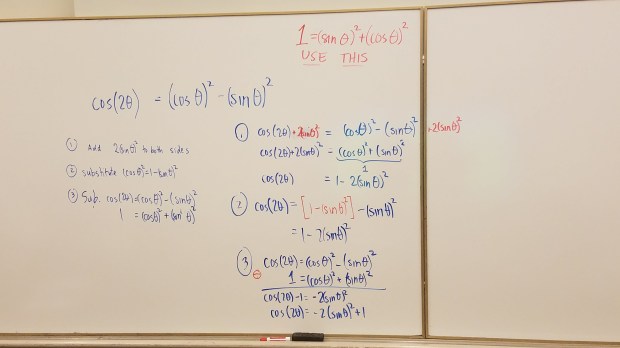 1 = (sin θ)² + (cos θ)²
USE THIS
cos(2θ) = (cos θ)² - (sin θ)²
① Add 2(sin θ)² to both sides
② substitute (cos θ)² = 1 - (sin θ)²
③ Sub. cos(2θ) = (cos θ)² - (sin θ)²
1 = (cos θ)² + (sin θ)²
① cos(2θ) + 2(sin θ)² = (cos θ)² - (sin θ)² + 2(sin θ)²
cos(2θ) + 2(sin θ)² = (cos θ)² + (sin θ)²
1
cos(2θ) = 1 - 2(sin θ)²
② cos(2θ) = [1 - (sin θ)²] - (sin θ)²
= 1 - 2(sin θ)²
③ cos(2θ) = (cos θ)² - (sin θ)²
⊖ 1 = (cos θ)² + (sin θ)²
cos(2θ) - 1 = -2(sin θ)²
cos(2θ) = -2(sin θ)² + 1